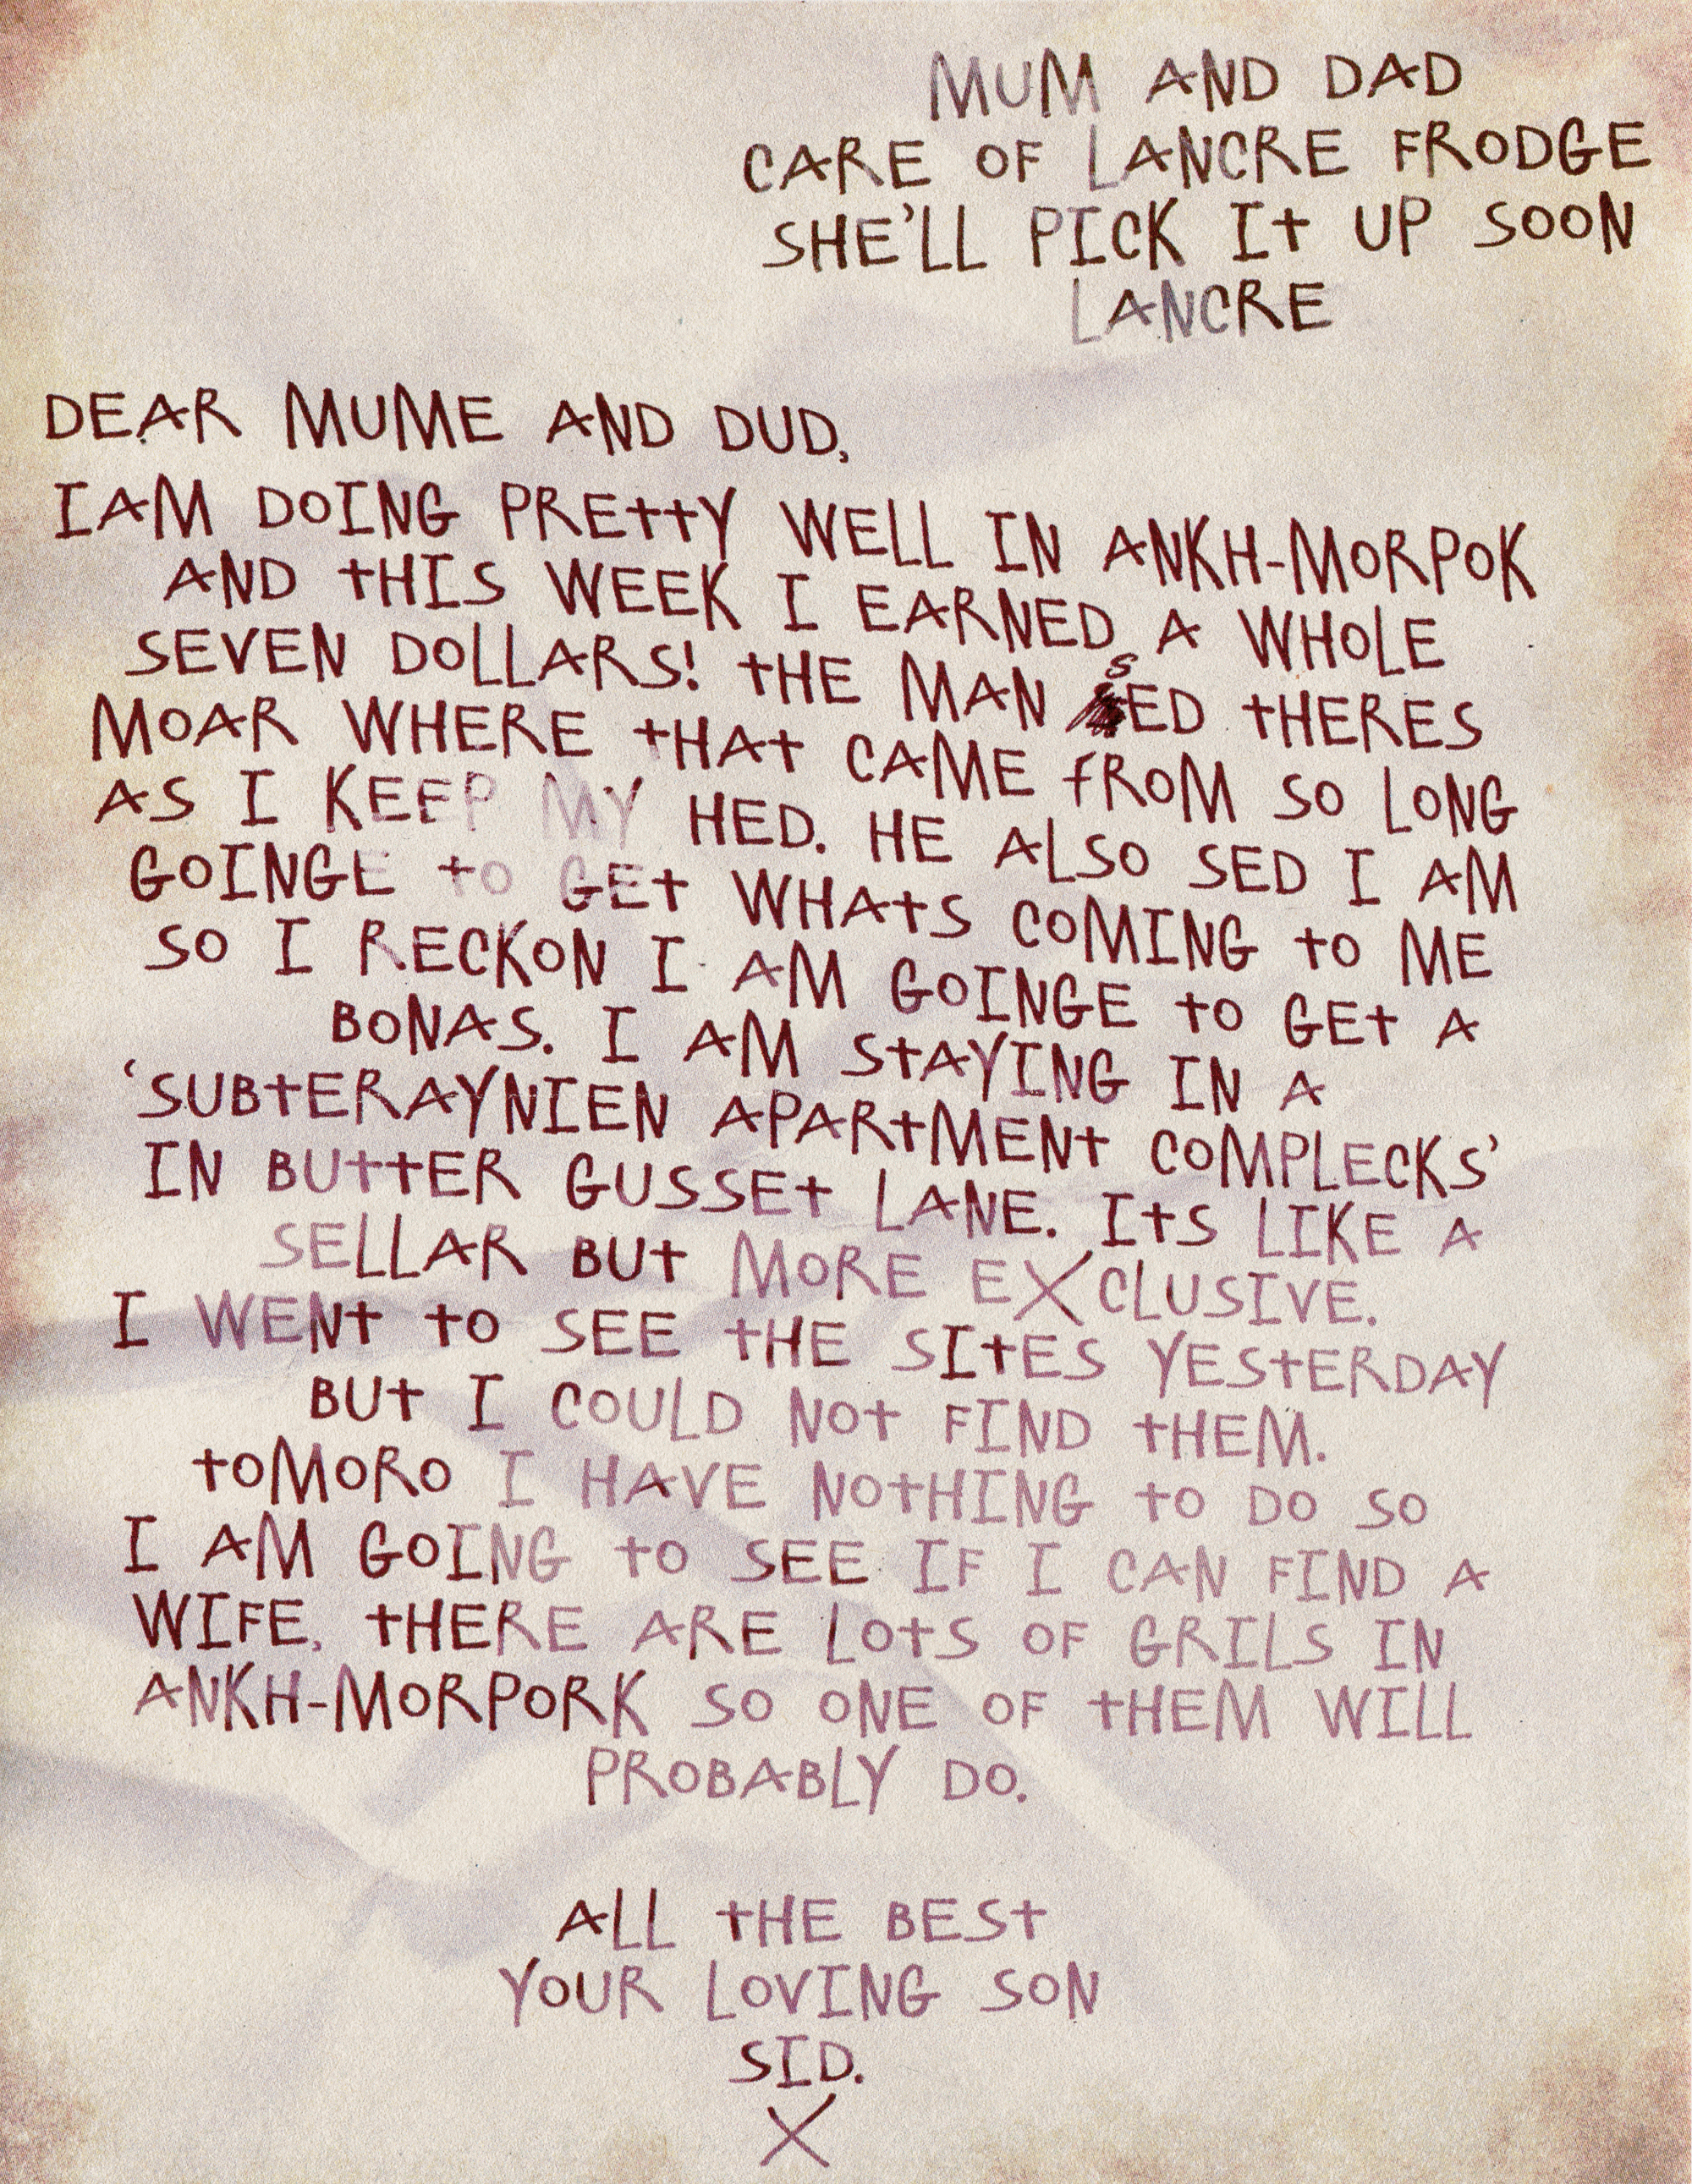 MUM AND DAD
CARE OF LANCRE FRODGE
SHE'LL PICK It UP SOON
LANCRE
DEAR MUME AND DUD,
I AM DOING PREttY WELL IN ANKH-MORPOK
AND tHIS WEEK I EARNED A WHOLE
SEVEN DOLLARS! tHE MAN SED tHERES
MOAR WHERE tHAt CAME fROM SO LONG
AS I KEEP MY HED. HE ALSO SED I AM
GOINGE tO GEt WHAtS COMING tO ME
SO I RECKON I AM GOINGE tO GEt A
BONAS. I AM StAYING IN A
'SUBtERAYNIEN APARtMENt COMPLECKS'
IN BUttER GUSSEt LANE. ItS LIKE A
SELLAR BUt MORE EXCLUSIVE.
I WENt tO SEE tHE SItES YEStERDAY
BUt I COULD NOt FIND tHEM.
tOMORO I HAVE NOtHING tO DO SO
I AM GOING tO SEE IF I CAN FIND A
WIFE. tHERE ARE LOtS OF GRILS IN
ANKH-MORPORK SO ONE OF tHEM WILL
PROBABLY DO.
ALL tHE BESt
YOUR LOVING SON
SID.
X